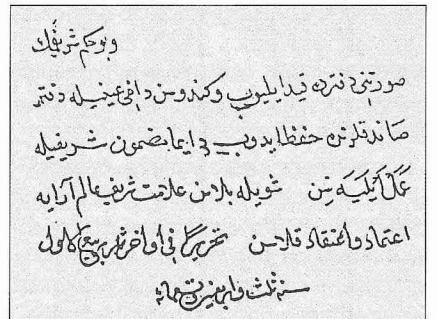 و بو حكم شريفك
صورتنى دفتره قيد ايليوب و كندوسن دخى عينيله دفتر
صاندقلرنده حفظ ايدوب دايما مضمون شريفيله
عمل ايليه سن شويله بلاسن علامت شريف عالم آرايه
اعتماد و اعتقاد قلاسن تحريرا فى اواخر شهر ربيع الاول
سنه ثلث و اربعين و تسعمائه